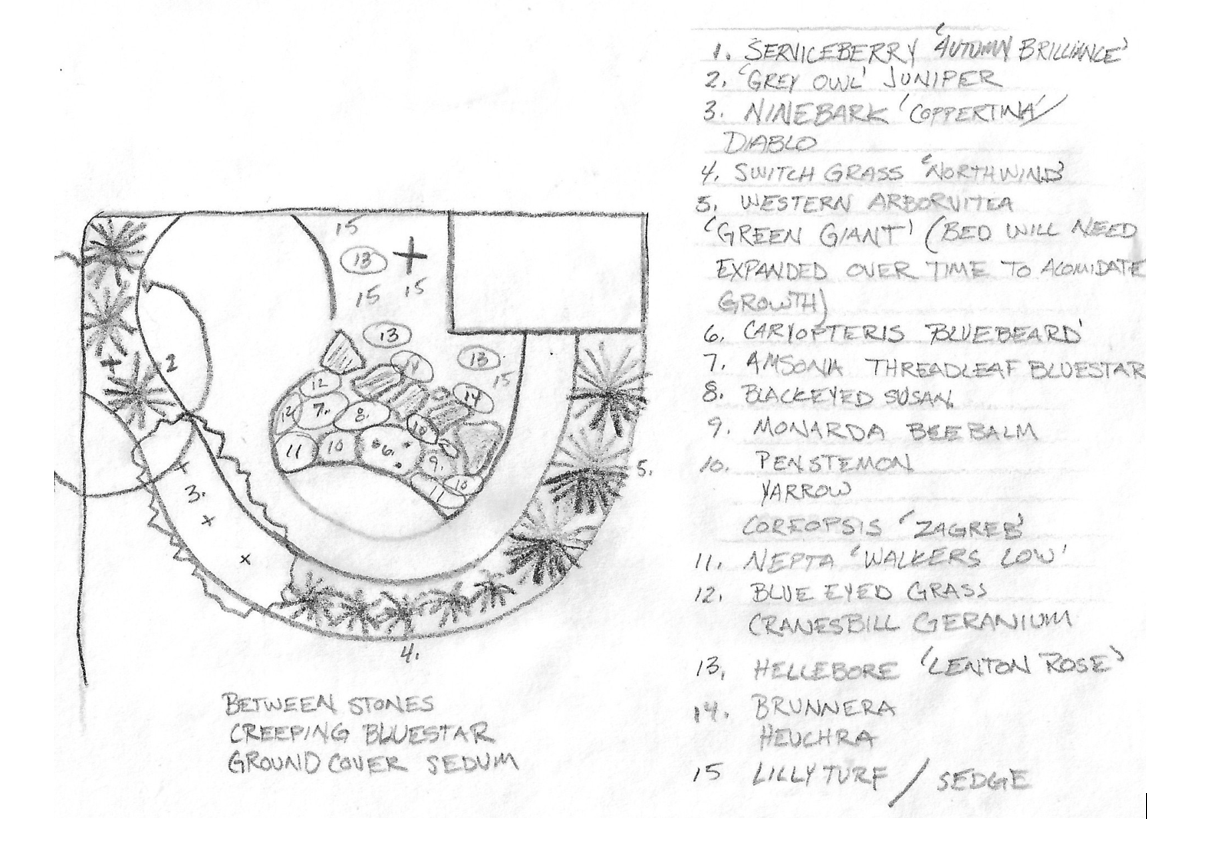 1. SERVICEBERRY 'AUTUMN BRILLIANCE'
2. 'GREY OWL' JUNIPER
3. NINEBARK 'COPPERTINA'/
DIABLO
4. SWITCH GRASS 'NORTHWIND'
5. WESTERN ARBORVITEA
'GREEN GIANT' (BED WILL NEED
EXPANDED OVER TIME TO ACOMIDATE
GROWTH)
6. CARYOPTERIS 'BLUEBEARD'
7. AMSONIA THREADLEAF BLUESTAR
8. BLACKEYED SUSAN
9. MONARDA BEEBALM
10. PENSTEMON
YARROW
COREOPSIS 'ZAGREB'
11. NEPTA 'WALKERS LOW'
12. BLUE EYED GRASS
CRANESBILL GERANIUM
13, HELLEBORE 'LENTON ROSE'
14. BRUNNERA
HEUCHRA
15 LILLYTURF / SEDGE
15
13
15 15
13
2
14 13
15
12
14
12 7. 8.
10
11 10 6. 9.
10
11
5.
3.
4.
BETWEEN STONES
CREEPING BLUESTAR
GROUND COVER SEDUM